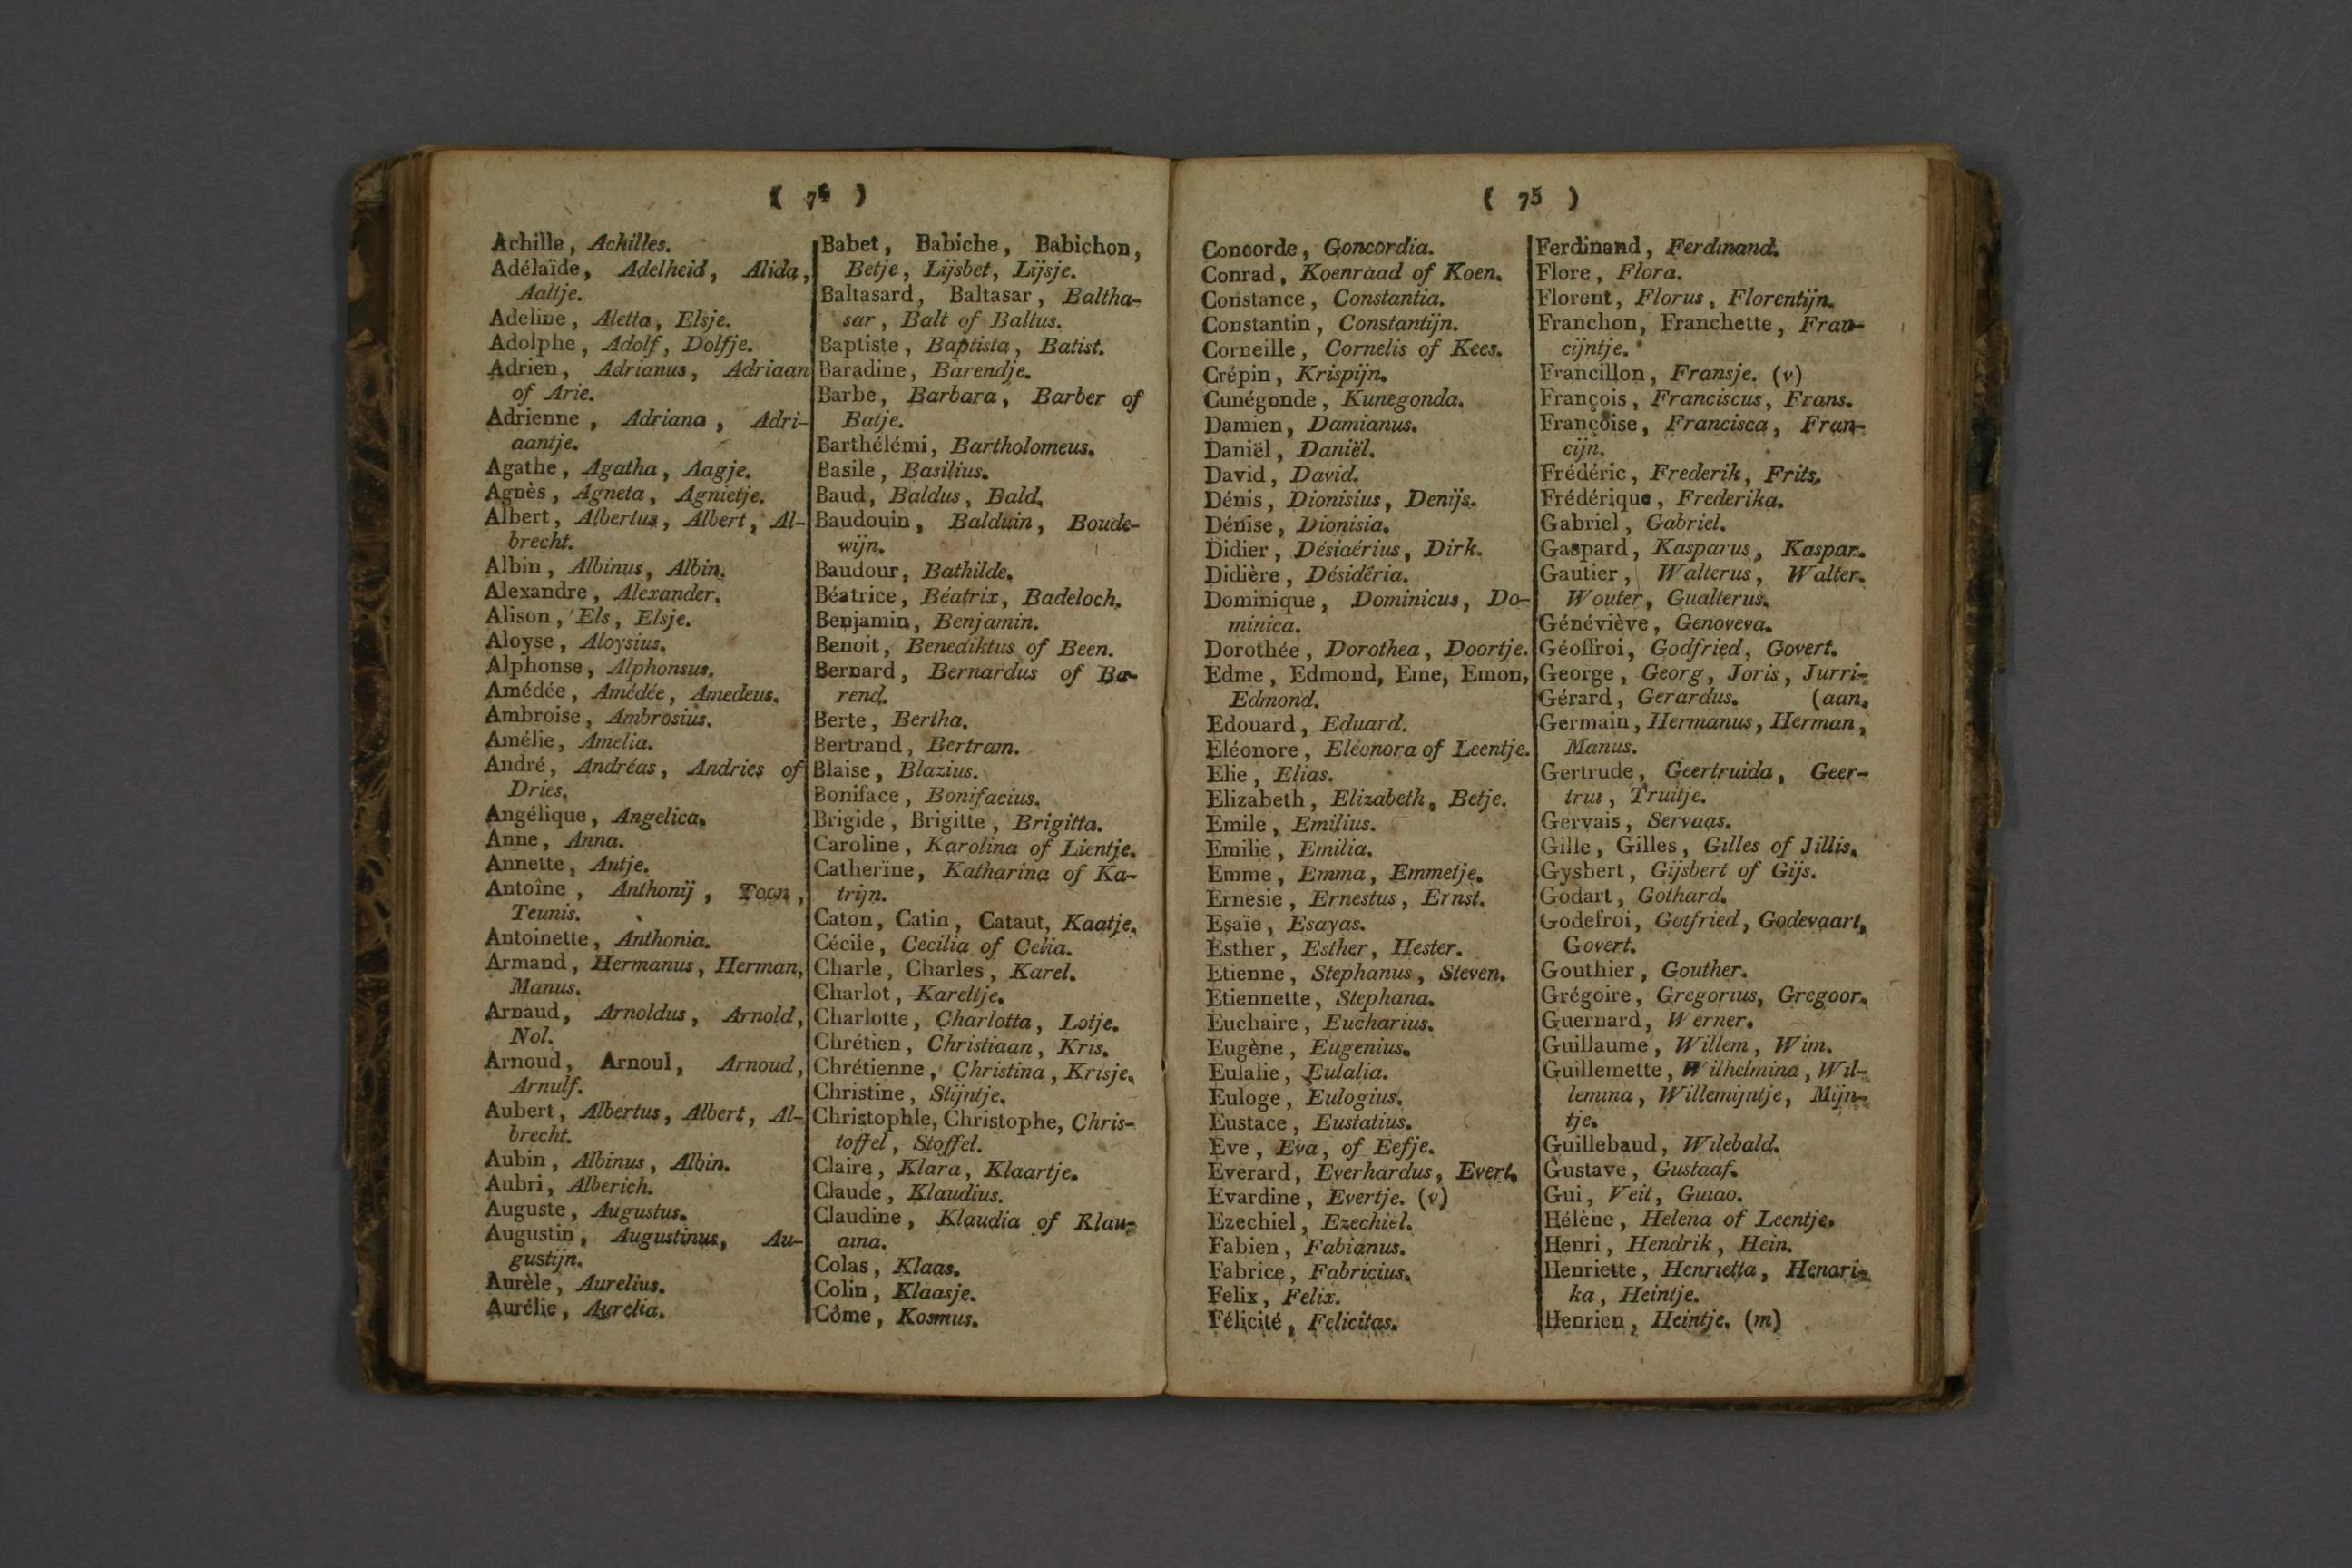 ( 74 )
Achille, Achilles.
Adélaïde, Adelheid, Alida,
Aaltje.
Adeline, Aletta, Elsje.
Adolphe, Adolf, Dolfje.
Adrien, Adrianus, Adriaan
of Arie.
Adrienne, Adriana, Adri-
aantje.
Agathe, Agatha, Aagje.
Agnès, Agneta, Agnietje.
Albert, Albertus, Albert, Al-
brecht.
Albin, Albinus, Albin.
Alexandre, Alexander.
Alison, Els, Elsje.
Aloyse, Aloysius.
Alphonse, Alphonsus.
Amédée, Amédée, Amedeus.
Ambroise, Ambrosius.
Amélie, Amelia.
André, Andréas, Andries of
Dries.
Angélique, Angelica.
Anne, Anna.
Annette, Antje.
Antoîne, Anthonij, Toon,
Teunis.
Antoinette, Anthonia.
Armand, Hermanus, Herman,
Manus.
Arnaud, Arnoldus, Arnold,
Nol.
Arnoud, Arnoul, Arnoud,
Arnulf.
Aubert, Albertus, Albert, Al-
brecht.
Aubin, Albinus, Albin.
Aubri, Alberich.
Auguste, Augustus.
Augustin, Augustinus, Au-
gustijn.
Aurèle, Aurelius.
Aurélie, Aurelia.
Babet, Babiche, Babichon,
Betje, Lijsbet, Lijsje.
Baltasard, Baltasar, Baltha-
sar, Balt of Baltus.
Baptiste, Baptista, Batist.
Baradine, Barendje.
Barbe, Barbara, Barber of
Batje.
Barthélémi, Bartholomeus.
Basile, Basilius.
Baud, Baldus, Bald.
Baudouin, Balduin, Boude-
wijn.
Baudour, Bathilde.
Béatrice, Béatrix, Badeloch.
Benjamin, Benjamin.
Benoit, Benediktus of Been.
Bernard, Bernardus of Ba-
rend.
Berte, Bertha.
Bertrand, Bertram.
Blaise, Blazius.
Boniface, Bonifacius.
Brigide, Brigitte, Brigitta.
Caroline, Karolina of Lientje.
Catherïne, Katharina of Ka-
trijn.
Caton, Catin, Cataut, Kaatje.
Cécile, Cecilia of Celia.
Charle, Charles, Karel.
Charlot, Kareltje.
Charlotte, Charlotta, Lotje.
Chrétien, Christiaan, Kris.
Chrétienne, Christina, Krisje.
Christine, Stijntje.
Christophle, Christophe, Chris-
toffel, Stoffel.
Claire, Klara, Klaartje.
Claude, Klaudius.
Claudine, Klaudia of Klau-
dina.
Colas, Klaas.
Colin, Klaasje.
Côme, Kosmus.
( 75 )
Concorde, Concordia.
Conrad, Koenraad of Koen.
Constance, Constantia.
Constantin, Constantijn.
Corneille, Cornelis of Kees.
Crépin, Krispijn.
Cunégonde, Kunegonda.
Damien, Damianus.
Daniël, Daniël.
David, David.
Dénis, Dionisius, Denijs.
Dénise, Dionisia.
Didier, Désidérius, Dirk.
Didière, Désidêria.
Dominique, Dominicus, Do-
minica.
Dorothée, Dorothea, Doortje.
Edme, Edmond, Eme, Emon,
Edmond.
Edouard, Eduard.
Eléonore, Eléonora of Leentje.
Elie, Elias.
Elizabeth, Elizabeth, Betje.
Emile, Emilius.
Emilie, Emilia.
Emme, Emma, Emmetje.
Ernesie, Ernestus, Ernst.
Esaïe, Esayas.
Esther, Esther, Hester.
Etienne, Stephanus, Steven.
Etiennette, Stephana.
Euchaire, Eucharius.
Eugène, Eugenius.
Eulalie, Eulalia.
Euloge, Eulogius.
Eustace, Eustatius.
Eve, Eva, of Eefje.
Everard, Everhardus, Evert.
Evardine, Evertje. (v)
Ezechiel, Ezechiël.
Fabien, Fabianus.
Fabrice, Fabricius.
Felix, Felix.
Félicité, Felicitas.
Ferdinand, Ferdinand.
Flore, Flora.
Florent, Florus, Florentijn.
Franchon, Franchette, Fran-
cijntje.
Francillon, Fransje. (v)
François, Franciscus, Frans.
Françoise, Francisca, Fran-
cijn.
Frédéric, Frederik, Frits.
Frédérique, Frederika.
Gabriel, Gabriel.
Gaspard, Kasparus, Kaspar.
Gautier, Walterus, Walter.
Wouter, Gualterus.
Généviève, Genoveva.
Géoffroi, Godfried, Govert.
George, Georg, Joris, Jurri-
Gérard, Gerardus. (aan.
Germain, Hermanus, Herman,
Manus.
Gertrude, Geertruida, Geer-
trui, Truitje.
Gervais, Servaas.
Gille, Gilles, Gilles of Jillis.
Gysbert, Gijsbert of Gijs.
Godart, Gothard.
Godefroi, Gotfried, Godevaart,
Govert.
Gouthier, Gouther.
Grégoire, Gregorius, Gregoor.
Guernard, Werner.
Guillaume, Willem, Wim.
Guillemette, Wilhelmina, Wil-
lemina, Willemijntje, Mijn-
tje.
Guillebaud, Wilebald.
Gustave, Gustaaf.
Gui, Veit, Guido.
Hélène, Helena of Leentje.
Henri, Hendrik, Hein.
Henriette, Henrietta, Hendri-
ka, Heintje.
Henrien, Heintje. (m)